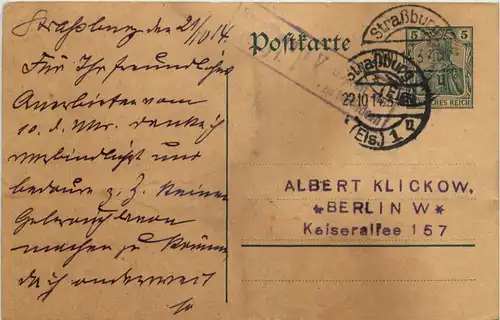 Straßburg den 21/10 14.
Für Ihr freundliches
Anerbieten vom
10. d. Mts. danke ich
verbindlichst und
bedaure z. Z. keinen
Gebrauch davon
machen zu können,
da ich anderweit
Postkarte
Straßburg
5 5
DEUTSCHES REICH
Straßburg
(Els.)
22.10.14.
(Els.) 1
ALBERT KLICKOW,
* BERLIN W *
Kaiserallee 157